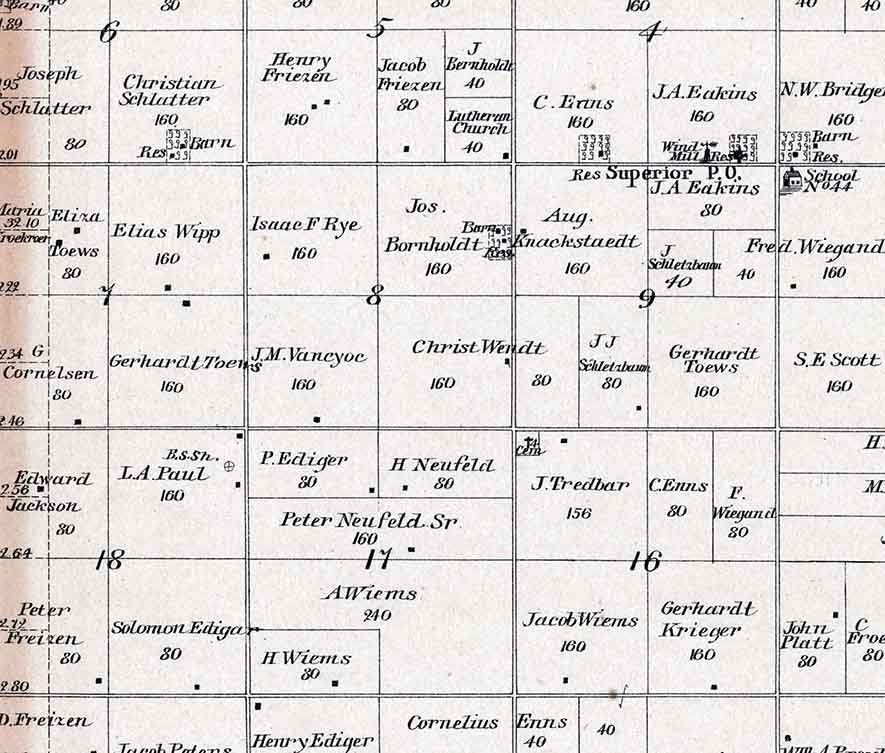 Barn
40
80
80
80
160
40
40
1.89
6
5
4
Joseph
Schlatter
80
295
201
Christian
Schlatter
160
Res
Barn
Henry
Friezen
160
Jacob
Friezen
80
J
Bernholdt
40
Lutheran
Church
40
C. Enns
160
J.A. Eakins
160
Wind
Mill
Res
N.W. Bridge
160
Barn
Res.
Res Superior P.O.
School
No 44
Maria
32 10
Kroekroer
Eliza
Toews
80
Elias Wipp
160
Isaac F Rye
160
Jos.
Bornholdt
160
Barn
Res.
Aug.
Knackstaedt
160
J.A Eakins
80
J
Schletzbaum
40
40
Fred. Wiegand
160
222
7
8
9
234
G
Cornelsen
80
Gerhardt Toews
160
J.M. Vancyoc
160
Christ Wendt
160
80
J J
Schletzbaum
80
Gerhardt
Toews
160
S.E Scott
160
2 46
Edward
2.56
Jackson
80
B.S.Sh.
L.A. Paul
160
P. Ediger
80
H Neufeld
80
Peter Neufeld Sr
160
Cem
J. Tredbar
156
C. Enns
80
F.
Wiegand
80
H.
M.
2.64
18
17
16
Peter
2.72
Freizen
80
Solomon Edigar
80
A Wiems
240
H Wiems
80
Jacob Wiems
160
Gerhardt
Krieger
160
John
Platt
80
C
Froe
80
2 80
D. Freizen
Jacob Peters
Henry Ediger
Cornelius Enns
40
40
Wm A